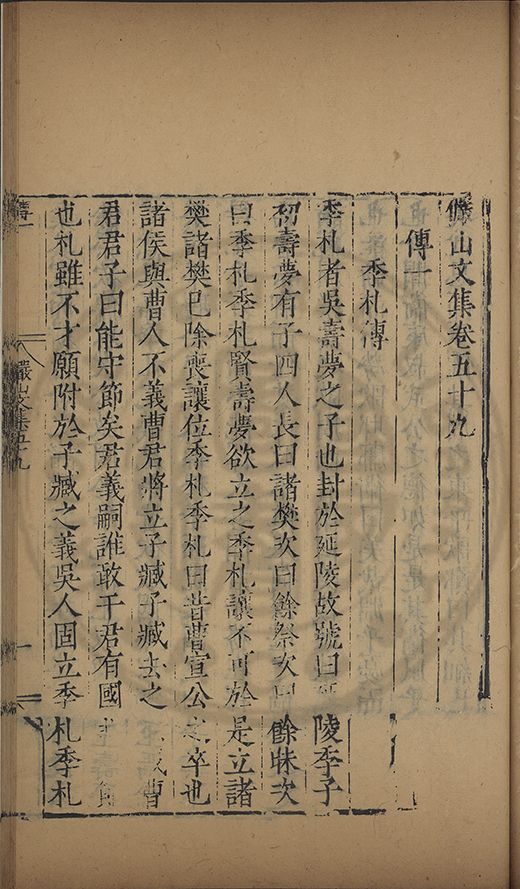 儼山文集卷五十九
傳一
季札傳
季札者吳壽夢之子也封於延陵故號曰陵季子
初壽夢有子四人長曰諸樊次曰餘祭次曰餘昩次
曰季札季札賢壽夢欲立之季札讓不可於是立諸
樊諸樊已除喪讓位季札季札曰昔曹宣公之卒也
諸侯與曹人不義曹君將立子臧子臧去之以成曹
君君子曰能守節矣君義嗣誰敢干君有國非節
也札雖不才願附於子臧之義吳人固立季札季札
儼山文集五十九
一